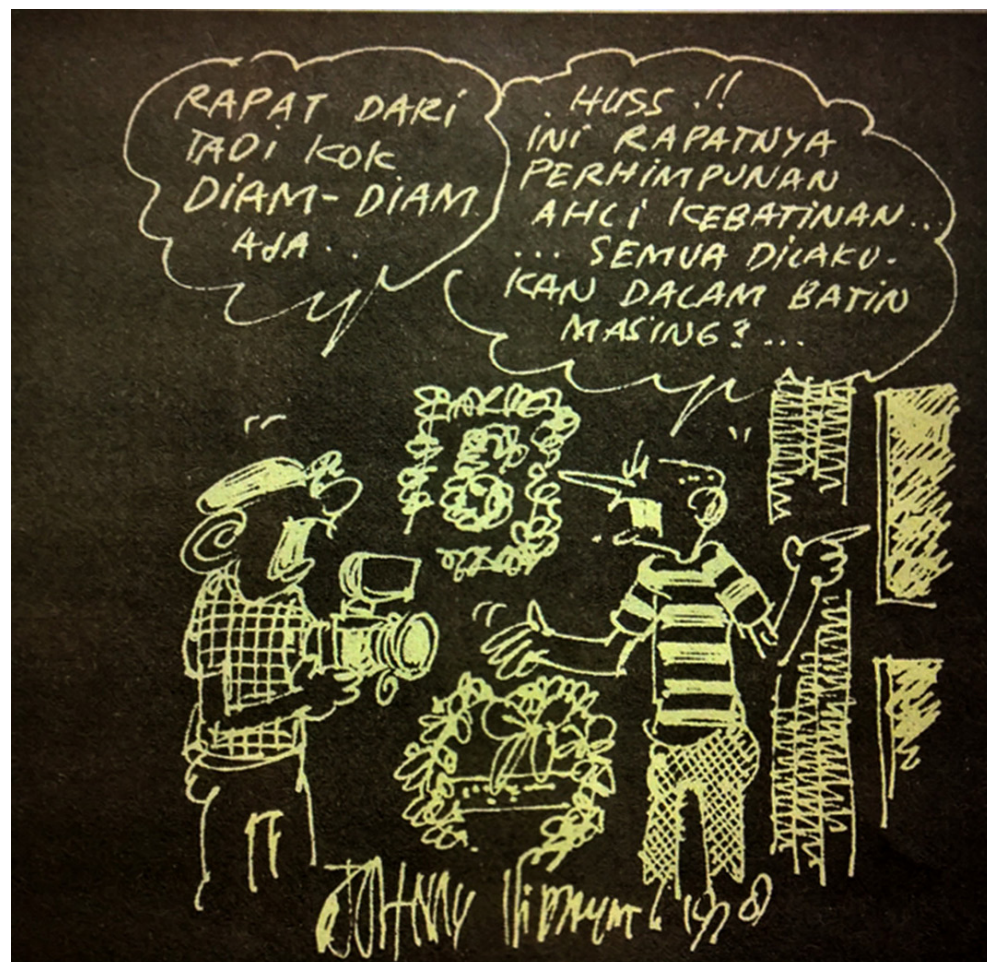 RAPAT DARI
TADI KOK
DIAM-DIAM
AJA..
HUSS !!
INI RAPATNYA
PERHIMPUNAN
AHLI KEBATINAN...
... SEMUA DILAKU-
KAN DALAM BATIN
MASING2 ...
JOHNNY HIDAYAT